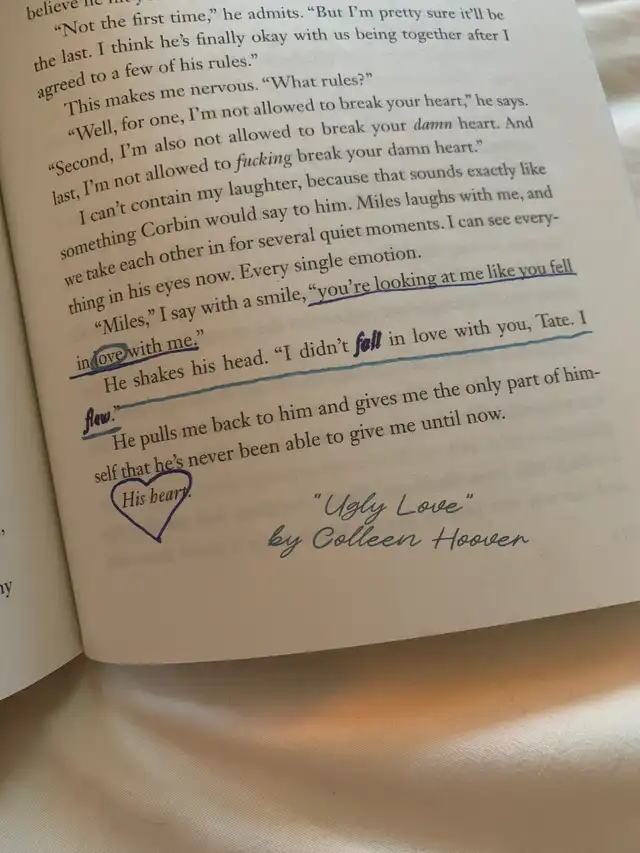 believe he
"Not the first time," he admits. "But I'm pretty sure it'll be
the last. I think he's finally okay with us being together after I
agreed to a few of his rules."
This makes me nervous. "What rules?"
"Well, for one, I'm not allowed to break your heart," he says.
"Second, I'm also not allowed to break your damn heart. And
last, I'm not allowed to fucking break your damn heart."
I can't contain my laughter, because that sounds exactly like
something Corbin would say to him. Miles laughs with me, and
we take each other in for several quiet moments. I can see every-
thing in his eyes now. Every single emotion.
"Miles," I say with a smile, "you're looking at me like you fell
in love with me."
He shakes his head. "I didn't fall in love with you, Tate. I
flew."
He pulls me back to him and gives me the only part of him-
self that he's never been able to give me until now.
His heart.
"Ugly Love"
by Colleen Hoover